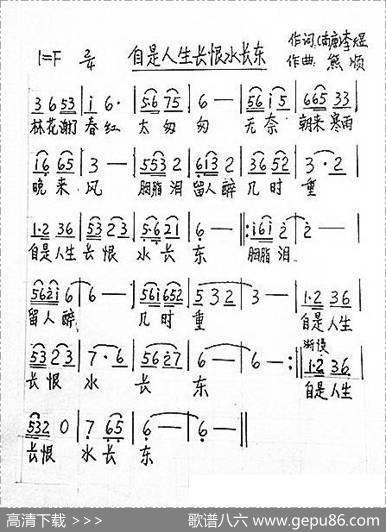 1=F 2/4 自是人生长恨水长东 作词:(南唐)李煜
作曲: 熊顺
3 6 53 | i 6· | 56 75 | 6 — | 56 i 5 | 665 33 |
林花谢了 春红 太匆匆 无奈 朝来寒雨
i6 65 | 3 — | 553 2 | 613 2 | 36 52 | 3 · 2 |
晚来风 胭脂泪 留人醉 几时重
1·2 36 | 53 23 | 5·6 21 | 6 — ‖: i6i 2 | 2 — |
自是人生 长恨 水长东 胭脂泪
562i 6 | 6 — | 56i 652 | 5 3 2 | 3 — | 1·2 36 |
留人醉 几时重 自是人生
渐慢
53 23 | 7 · 6 | 56 27 | 6 — | 6 — :‖ 1·2 36 |
长恨 水长东 自是人生
532 0 | 7 65 | 6 — | 6 — ‖
长恨 水长东
高清下载 >>> 歌谱八六 www.gepu86.com